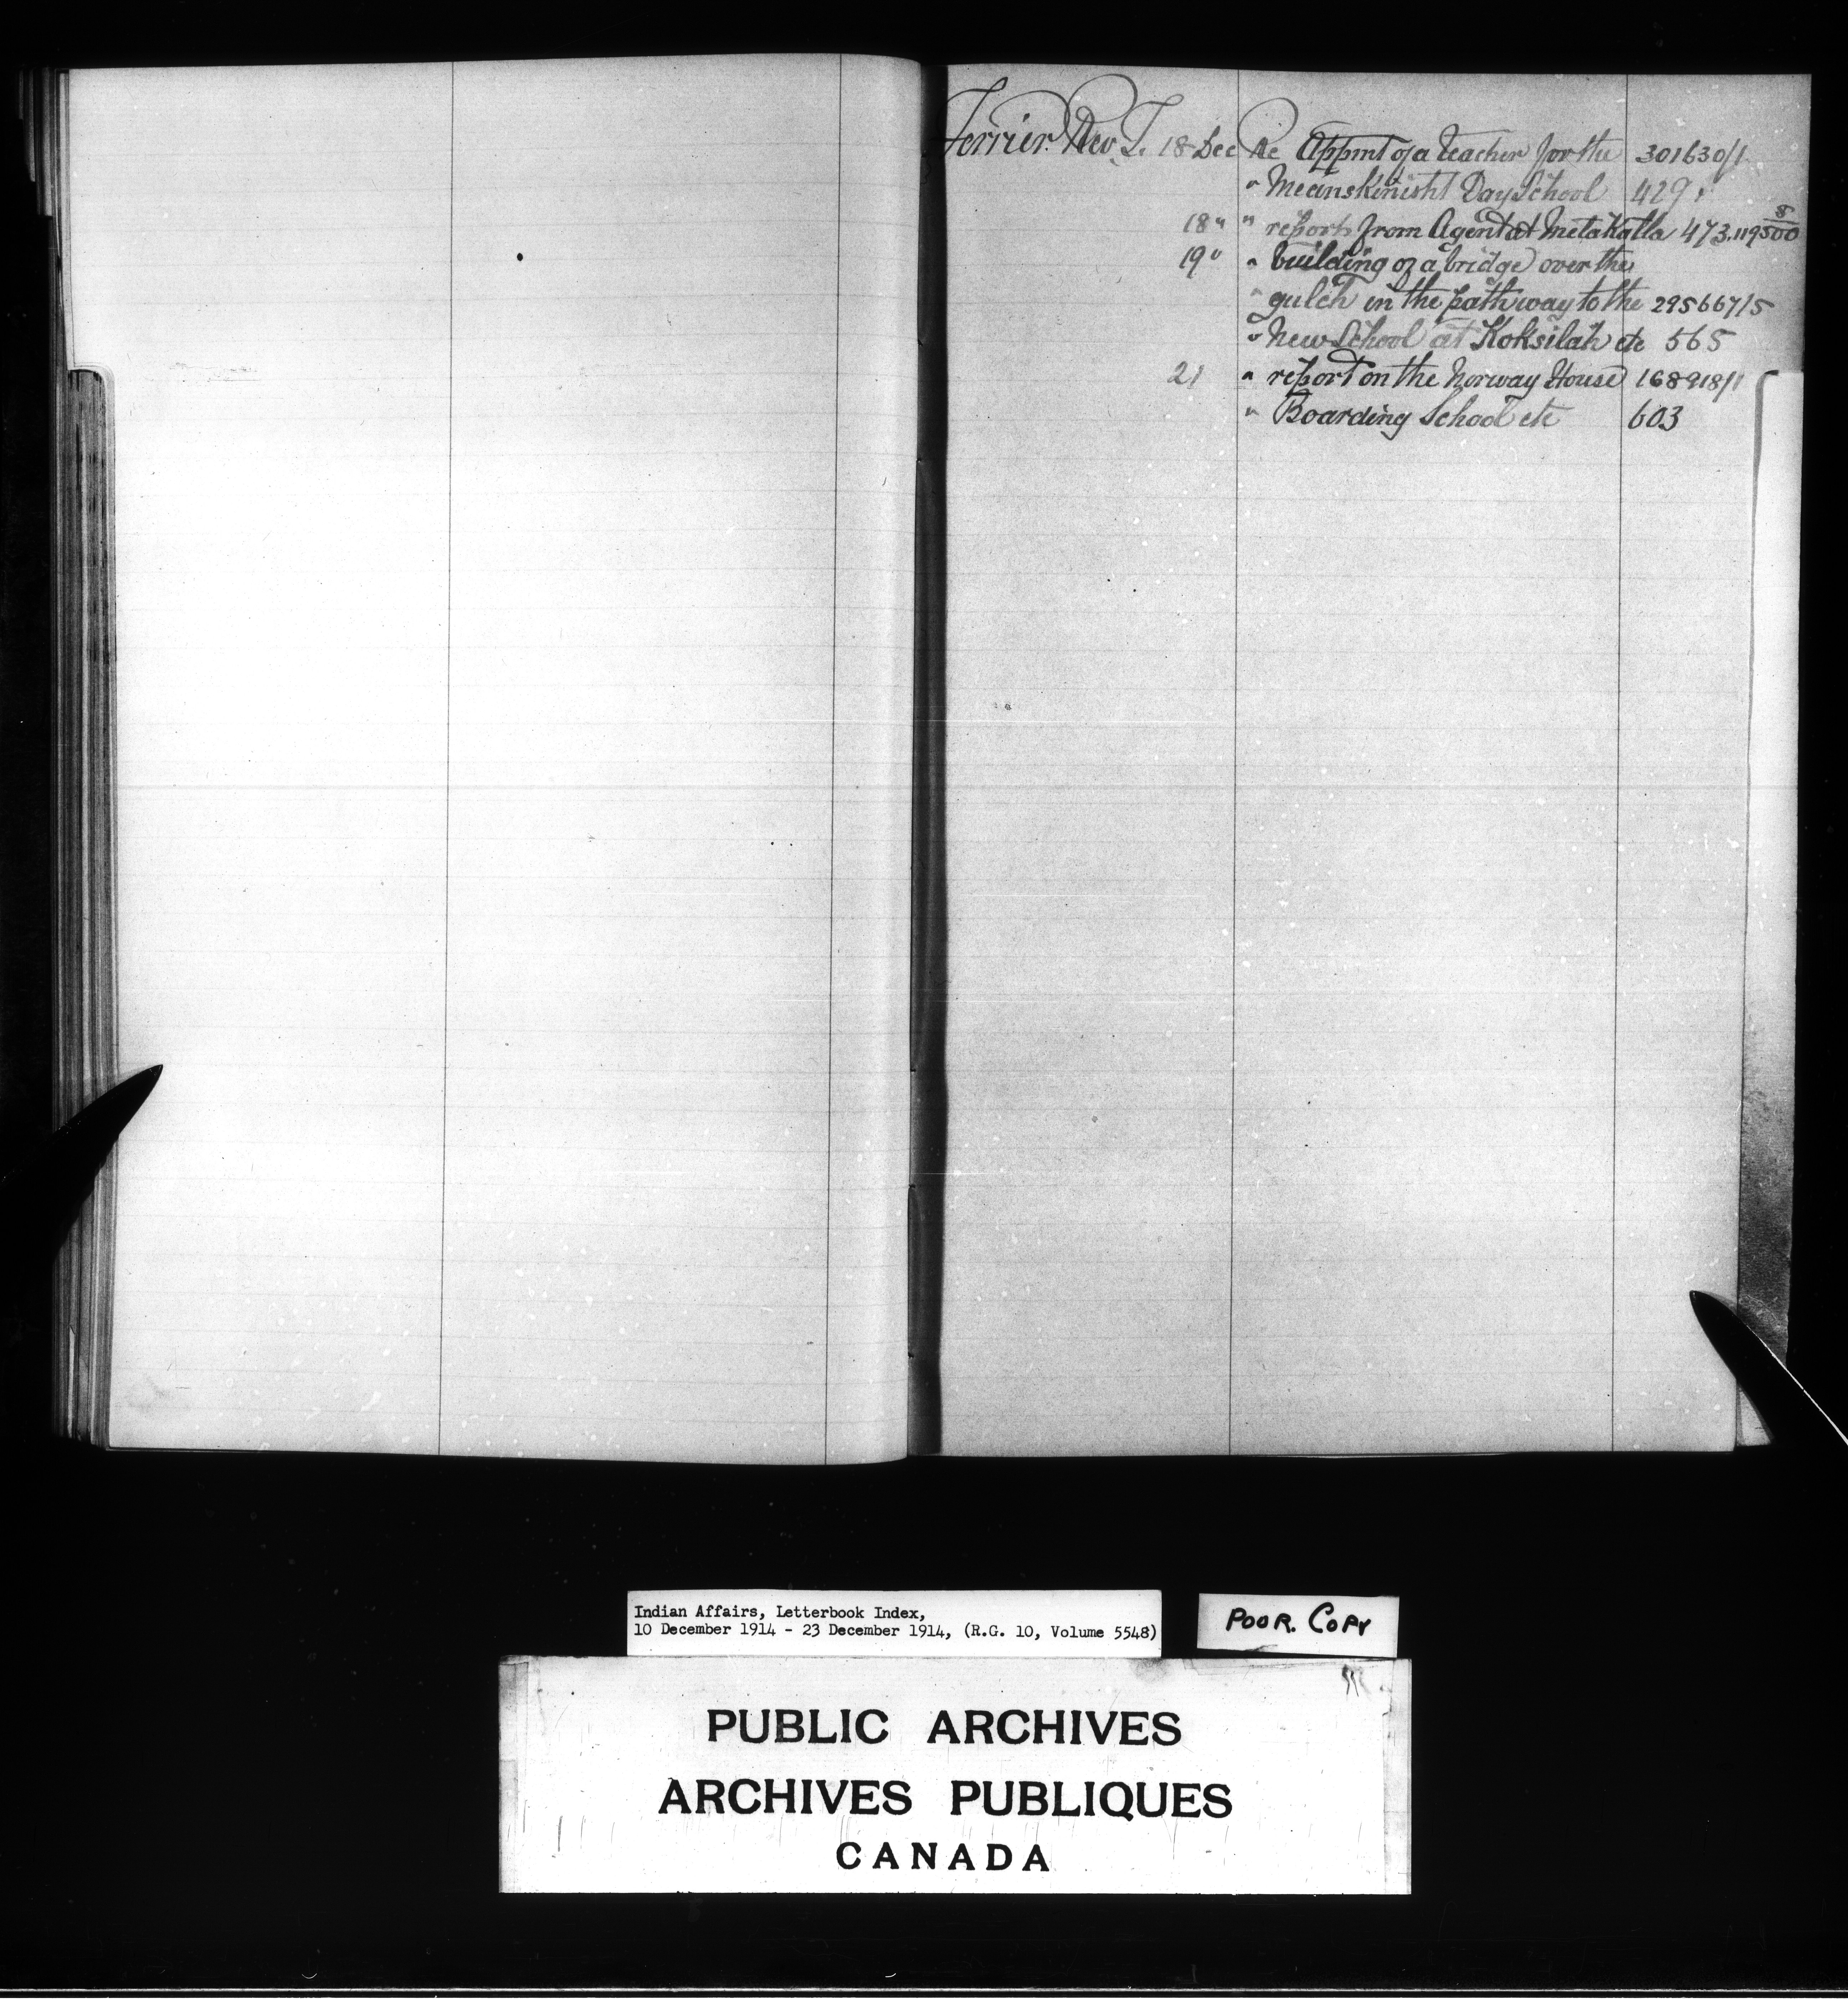 Ferrier. Rev T. 18 Dec Re Appmt of a teacher for the 301630/1
" Meanskinisht Day School 429
18 " " report from Agent at Metakatla 473. 119500 8
19 " " building of a bridge over the
" gulch in the path way to the 295667/5
" New School at Koksilah etc 565
21 " report on the Norway House 168918/1
" Boarding School etc 603
Indian Affairs, Letterbook Index,
10 December 1914 - 23 December 1914, (R.G. 10, Volume 5548)
POOR. COPY
PUBLIC ARCHIVES
ARCHIVES PUBLIQUES
CANADA